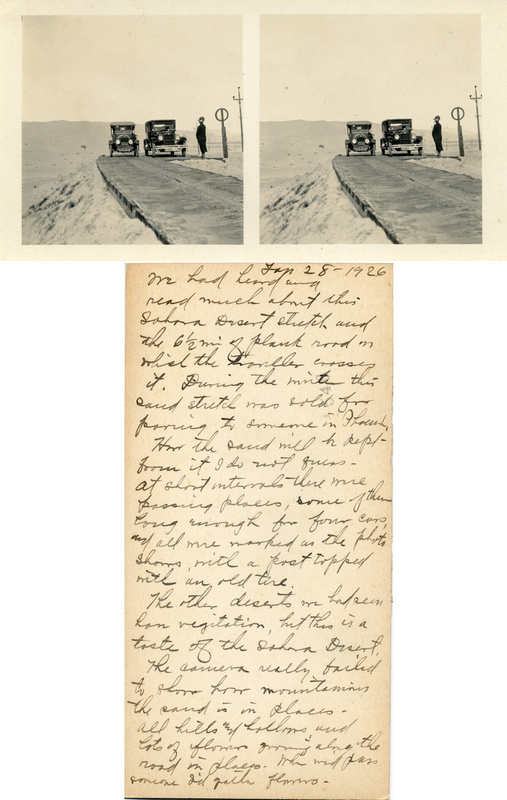 Jan 28-1926
We had heard and
read much about this
Sahara Desert stretch and
the 6½ mi of plank road on
which the traveller crosses
it. During the winter this
sand stretch was sold for
paving to someone in Phoenix,
How the sand will be kept
from it I do not guess-
At short intervals there were
passing places, some of them
long enough for four cars,
and all were marked as the photo
shows, with a post topped
with an old tire.
The other deserts we had seen
han vegitation, but this is a
taste of the Sahara Desert.
The camera really failed
to show how mountainous
the sand is in places-
All hills and hollows and
lots of flowers growing along the
road in places. When we'd pass
someone I'd gather flowers-